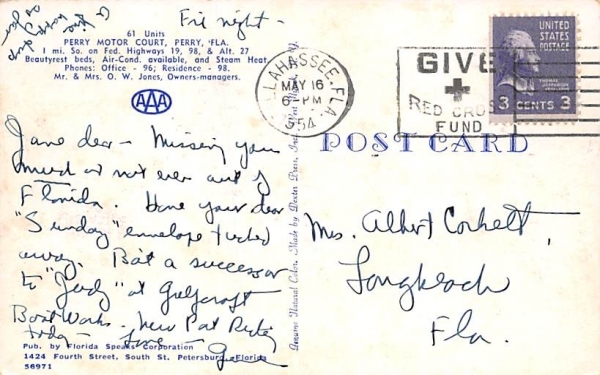 Fri night -
61 Units
PERRY MOTOR COURT, PERRY, FLA.
1 mi. So. on Fed. Highways 19, 98, & Alt. 27
Beautyrest beds, Air-Cond. available, and Steam Heat
Phones: Office - 96; Residence - 98.
Mr. & Mrs. O. W. Jones, Owners-managers.
AAA
Jane dear - Missing you
much & not even out of
Florida. Have your dear
"Sunday" envelope tucked
away. a successor
to "Judy" at
Boat Works. New Pat
today - Love -
Pub. by Florida Speaks Corporation
1424 Fourth Street, South St. Petersburg, Florida
56971
Genuine Natural Color. Made by Dexter Press, Inc.
TALLAHASSEE, FLA
MAY 16
6 - PM
1954
GIVE
RED CROSS
FUND
UNITED
STATES
POSTAGE
THOMAS
JEFFERSON
3 CENTS 3
POST CARD
Mrs. Albert Corkett,
Longbeach
Fla.